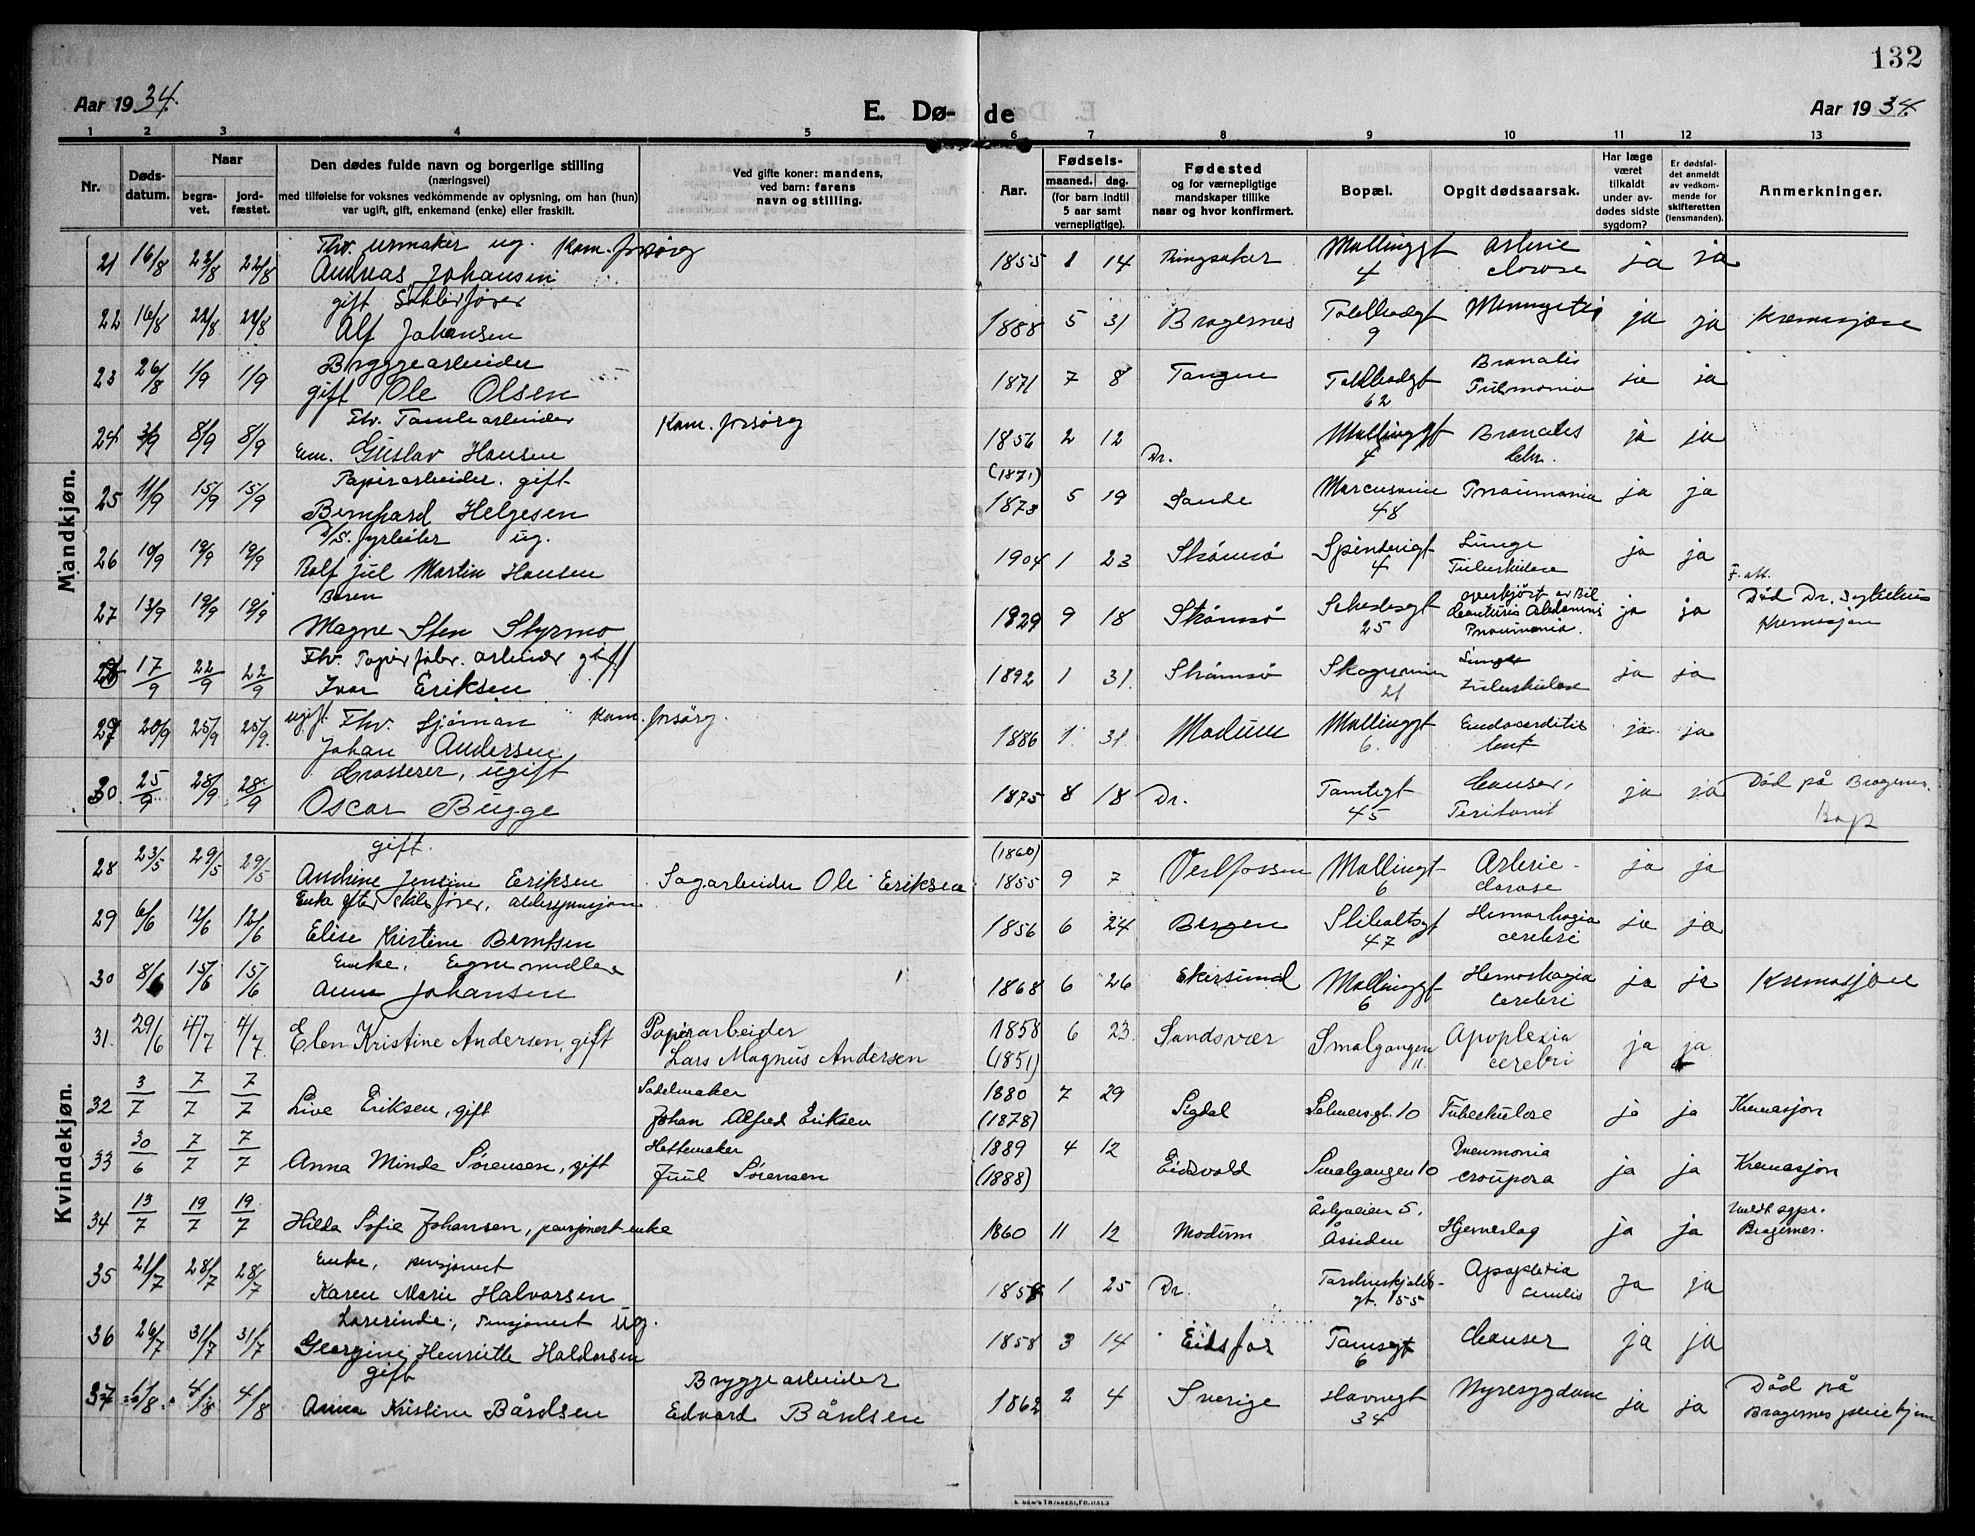 132
Aar 1934.
E. Dø- de
Aar 1934.
1 2 3 4 5 6 7 8 9 10 11 12 13
Nr.
Døds-
datum.
Naar
begra-
vet.
jord-
fæstet.
Den dødes fulde navn og borgerlige stilling
(næringsvei)
med tilføielse for voksnes vedkommende av oplysning, om han (hun)
var ugift, gift, enkemand (enke) eller fraskilt.
Ved gifte koner: mandens,
ved barn: farens
navn og stilling.
Aar.
Fødsels-
maaned. dag.
(for barn indtil
5 aar samt
vernepligtige).
Fødested
og for værnepligtige
mandskaper tillike
naar og hvor konfirmert.
Bopæl.
Opgit dødsaarsak.
Har læge
været
tilkaldt
under av-
dødes sidste
sygdom?
Er dødsfal-
det anmeldt
av vedkom-
mende for
skifteretten
(lensmanden).
Anmerkninger.
Mandkjøn.
21 16/8 23/8 22/8 Fhv. urmaker ug. Kom. forsørg
Andreas Johansen 1855 1 14 Ringsaker Mallinggt 4 Arterie clorose ja ja
22 16/8 22/8 22/8 gift
Alf Johansen 1888 5 31 Bragernes Toldbodgt 9 ja ja Kremasjon
23 26/8 1/9 1/9 Bryggearbeider
gift Ole Olsen 1871 7 8 Tangen Toldbodgt 62 ja ja
24 3/9 8/9 8/9 Fhv. Tomtearbeider Kom. forsørg
Em. Gustav Hansen 1856 2 12 Dr. Mallinggt 4 ja ja
25 11/9 15/9 15/9 Papirarbeider. gift
Bernhard Helgesen (1871) 1873 5 19 Sande 48 Pnaumonia ja ja
26 10/9 19/9 19/9 ug.
Rolf Jul Martin Hansen 1904 1 23 Strømsø 4 Lunge Tuberkulose ja ja
27 13/9 19/9 19/9 Barn
Magne Sten Styrmo 1929 9 18 Strømsø 25 overkjørt av Bil Pnaumonia. ja ja Død Dr. Sykehus Kremasjon
28 17/9 22/9 22/9 Fhv. Papirfabr. arbeider gift
Ivar Eriksen 1892 1 31. Strømsø 21 Lunge tuberkulose ja ja
29 20/9 25/9 25/9. ugift Fhv. Sjøman Kom. forsørg.
Johan Andersen 1886 1 31. Modum Mallinggt 6. Endocarditis lent ja ja
30 25/9 28/9 28/9 Grosserer, ugift
Oscar Bugge 1875 8 18 Dr. Tomtegt 45 Cancer, Peritonit ja ja Død på Bragernes
Kvindekjøn.
28 23/5 29/5 29/5 gift.
Andrine Jensine Eriksen Sagarbeider Ole Eriksen (1860) 1855 9 7 Vestfossen Mallingt 6 Arterie-clorose ja ja
29 6/6 12/6 12/6 Enke efter skibsfører, alderspensjon
Elise Kristine Berntsen 1856 6 24 Bergen 47 Hemorhagia cerebri ja ja
30 8/6 15/6 15/6 Enke. Egne midler
Anna Johansen 1868 6 26 Ekersund Mallinggt 6 Hemorhagia cerebri ja ja Kremasjon
31. 29/6 4/7 4/7. Elen Kristine Andersen, gift Papirarbeider
Lars Magnus Andersen 1858 (1851) 6 23. Sandsvær Smalgangen 11. Apoplexia cerebri ja ja
32 3/7 7/7 7/7 Live Eriksen, gift Sadelmaker
Johan Alfred Eriksen 1880 (1878) 7 29 Sigdal Selmersgt. 10 Tuberkulose ja ja Kremasjon
33 30/6 7/7 7/7 Anna Minda Sørensen, gift Hattemaker
Juul Sørensen 1889 (1888) 4 12 Eidsvold Smalgangen 10 Pneumonia croupøsa ja ja Kremasjon
34 13/7 19/7 19/7 Hilda Sofie Johansen, pensjonert enke 1860 11 12 Modum 5. Åssiden Hjerneslag ja ja Bragernes.
35 21/7 28/7 28/7 Enke, pensjonert
Karen Marie Halvorsen 1858 1 25 Dr. Tordenskjolds-gt. 155 Apoplexia cerebri ja ja
36 26/7 31/7 31/7 Lærerinde, Pensjonert ug.
Georgine Henriette Haldorsen 1858 3 14 Eidsfos Tomtegt 6 Cancer ja ja
37 1/8 4/8 4/8 gift Bryggearbeider
Anna Kristine Bårdsen Edvard Bårdsen 1862 2 4 Sverige Havnegt 34 Nyresygdom ja ja Død på
Bragernes pleiehjem